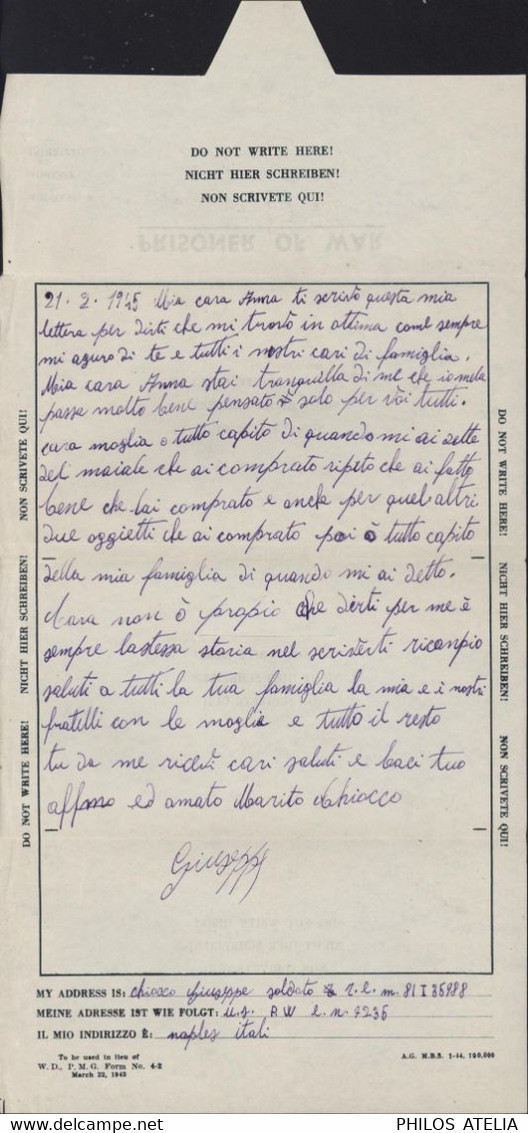 DO NOT WRITE HERE!
NICHT HIER SCHREIBEN!
NON SCRIVETE QUI!
PRISONER OF WAR
21. 2. 1945 Mia cara Anna ti scrivo questa mia
lettera per dirti che mi trovo in ottima come sempre
mi aguro di te e tutti i nostri cari di famiglia.
Mia cara Anna stai tranquilla di me che io me la
passa molto bene pensato solo per voi tutti.
cara moglia o tutto capito di quando mi ai dette
del maiale che ai comprato ripeto che ai fatto
bene che lai comprato e anche per quel altri
due oggietti che ai comprato poi ò tutto capito
della mia famiglia di quando mi ai detto.
Cara non ò propio che dirti per me è
sempre la stessa storia nel scriverti ricanpio
saluti a tutti la tua famiglia la mia e i nostri
fratelli con le moglie e tutto il resto
tu da me ricevi cari saluti e baci tuo
affmo ed amato Marito Chiocco
Giuseppe
DO NOT WRITE HERE! NICHT HIER SCHREIBEN! NON SCRIVETE QUI!
DO NOT WRITE HERE! NICHT HIER SCHREIBEN! NON SCRIVETE QUI!
MY ADDRESS IS: Chiocco Giuseppe soldato 81 I 35988
MEINE ADRESSE IST WIE FOLGT: U.S. P.W
IL MIO INDIRIZZO È: naples itali
To be used in lieu of
W. D., P. M. G. Form No. 4-2
March 22, 1943
A.G. M.B.S. 1-44, 100,000
PHILOS ATELIA